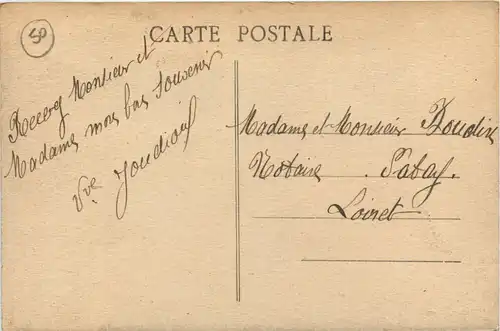 50
CARTE POSTALE
Recevez Monsieur et
Madame mon bon Souvenir
Vve
Madame et Monsieur
Notaire. Patay.
Loiret